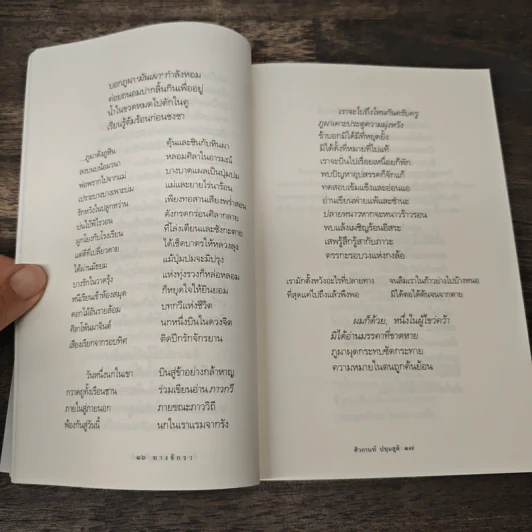 บอกภูผา "มันเผา" กำลังหอม
ค่อยถนอมปากลิ้นกินเพื่ออยู่
น้ำในขวดหมดไปตักในคู
เรียนรู้ต้มร้อนก่อนชงชา
...ภูผาดังภูหิน คุ้นและชินกับหินผา
ลงบนบน้อมวนา หลอมศิลาในอารมณ์
พ่อพรากไปจากแม่ บางบาดแผลเป็นปุ่มปม
เปราะบางบางเพาะบ่ม แม่และยายไร่นาร้อน
รักหวังในปลูกหว่าน เพียงทอสานเสียงพร่ำสอน
บ่นไม้ทิ้งไรวอน ดังกรดกร่อนศิลากลาย
ลูกโยงกับโรงเรียน ที่โล่งเตียนและซังกะตาย
แต่ดีที่เปลี่ยวดาย ได้เช็ดบาตรให้หลวงลุง
ได้ผ่านมัธยม แม้ปุ่มปมจะมีปรุง
บางรักในวาดรุ้ง แห่งทุ่งรวงก็หล่อหลอม
หนีเรียนเข้าห้องสมุด ก็หยุดใจให้ยินยอม
ดอกไม้อันรายล้อม บทกวีแห่งชีวิต
ศิลาโพ้นผาจินต์ นกหนึ่งบินในดวงจิต
เสียงเรียกจากรอบทิศ ติดปีกรักจักรยาน
วันหนึ่งนกในเขา บินสู่ข้าอย่างกล้าหาญ
กวาดถูทั้งเรือนชาน ร่วมเขียนอ่าน ภาวกวี
ภายในสู่ภายนอก ภายขณะภาววิถี
พ้องกันสู่วันนี้ นกในเราแรมจากรัง
๑๖ ทางจักรา
เราจะไปถึงไหนกันครับครู
ภูผาเคาะประตูความมุ่งหวัง
ข้าบอกมิได้มีที่หยุดยั้ง
มิได้ตั้งที่หมายที่ไปแท้
เราจะปั่นไปเรื่อยเหนื่อยก็พัก
พบปัญหาอุปสรรคก็จักแก้
ทดสอบเข้มแข็งและอ่อนแอ
อ่านเขียนพ่ายแพ้และชำนะ
ปลายหนาวหากจะหนาวร้าวรอน
พบแล้งเผชิญร้อนอิสระ
เสพรู้สึกรู้สากับภาวะ
ตรรกะรอบวงแห่งกงล้อ
เรามักตั้งหวังอะไรที่ปลายทาง จนลืมเราในก้าวย่างไปบ้างหนอ
ที่สุดแค่ไปถึงแล้วพึงพอ มิได้ต่อได้ต้นจนจากตาย
ผมก็ด้วย, หนึ่งในผู้ไขว่คว้า
มิได้อ่านมรรคาที่ขาดหาย
ภูผาผุดกระทบซัดกระทาย
ความหมายในตนถูกค้นย้อน
ศิวกานท์ ปทุมสูติ ๑๗